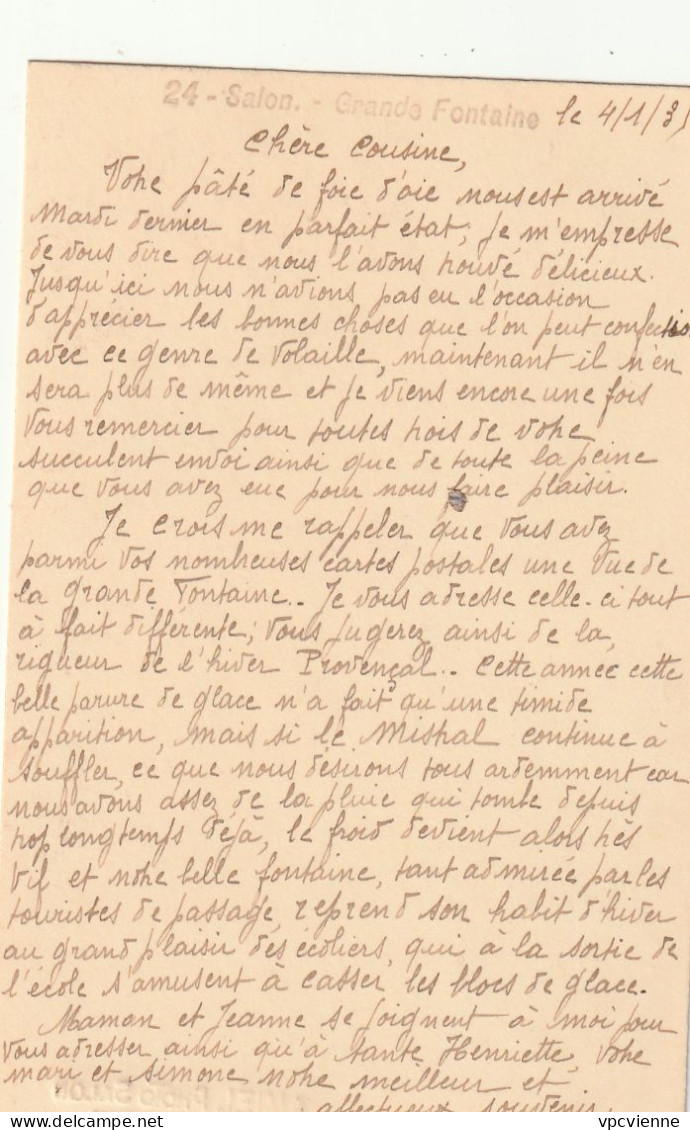 24 - Salon. - Grande Fontaine
le 4/1/35
Chère Cousine,
Votre pâté de foie d'oie nous est arrivé
Mardi dernier en parfait état; je m'empresse
de vous dire que nous l'avons trouvé délicieux.
Jusqu'ici nous n'avions pas eu l'occasion
d'apprécier les bonnes choses que l'on peut confectio
avec ce genre de volaille, maintenant il n'en
sera plus de même et je viens encore une fois
vous remercier pour toutes trois de votre
succulent envoi ainsi que de toute la peine
que vous avez eue pour nous faire plaisir.
Je crois me rappeler que vous avez
parmi vos nombreuses cartes postales une vue de
la Grande Fontaine.. Je vous adresse celle-ci tout
à fait différente; vous jugerez ainsi de la
rigueur de l'hiver Provençal.. Cette année cette
belle parure de glace n'a fait qu'une timide
apparition, mais si le Mistral continue à
souffler, ce que nous désirons tous ardemment car
nous avons assez de la pluie qui tombe depuis
trop longtemps déjà, le froid devient alors très
vif et notre belle fontaine, tant admirée par les
touristes de passage, reprend son habit d'hiver
au grand plaisir des écoliers, qui à la sortie de
l'école s'amusent à casser les blocs de glace.
Maman et Jeanne se joignent à moi pour
vous adresser ainsi qu'à tante Henriette, votre
mari et Simone notre meilleur et
affectueux souvenir.
vpcvienne